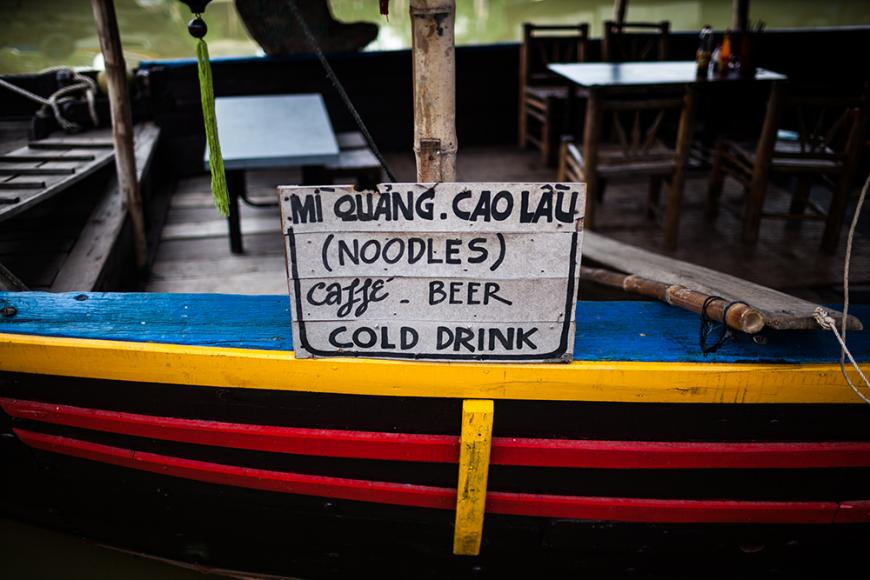 MÌ QUẢNG. CAO LẦU
(NOODLES)
CAFFE - BEER
COLD DRINK